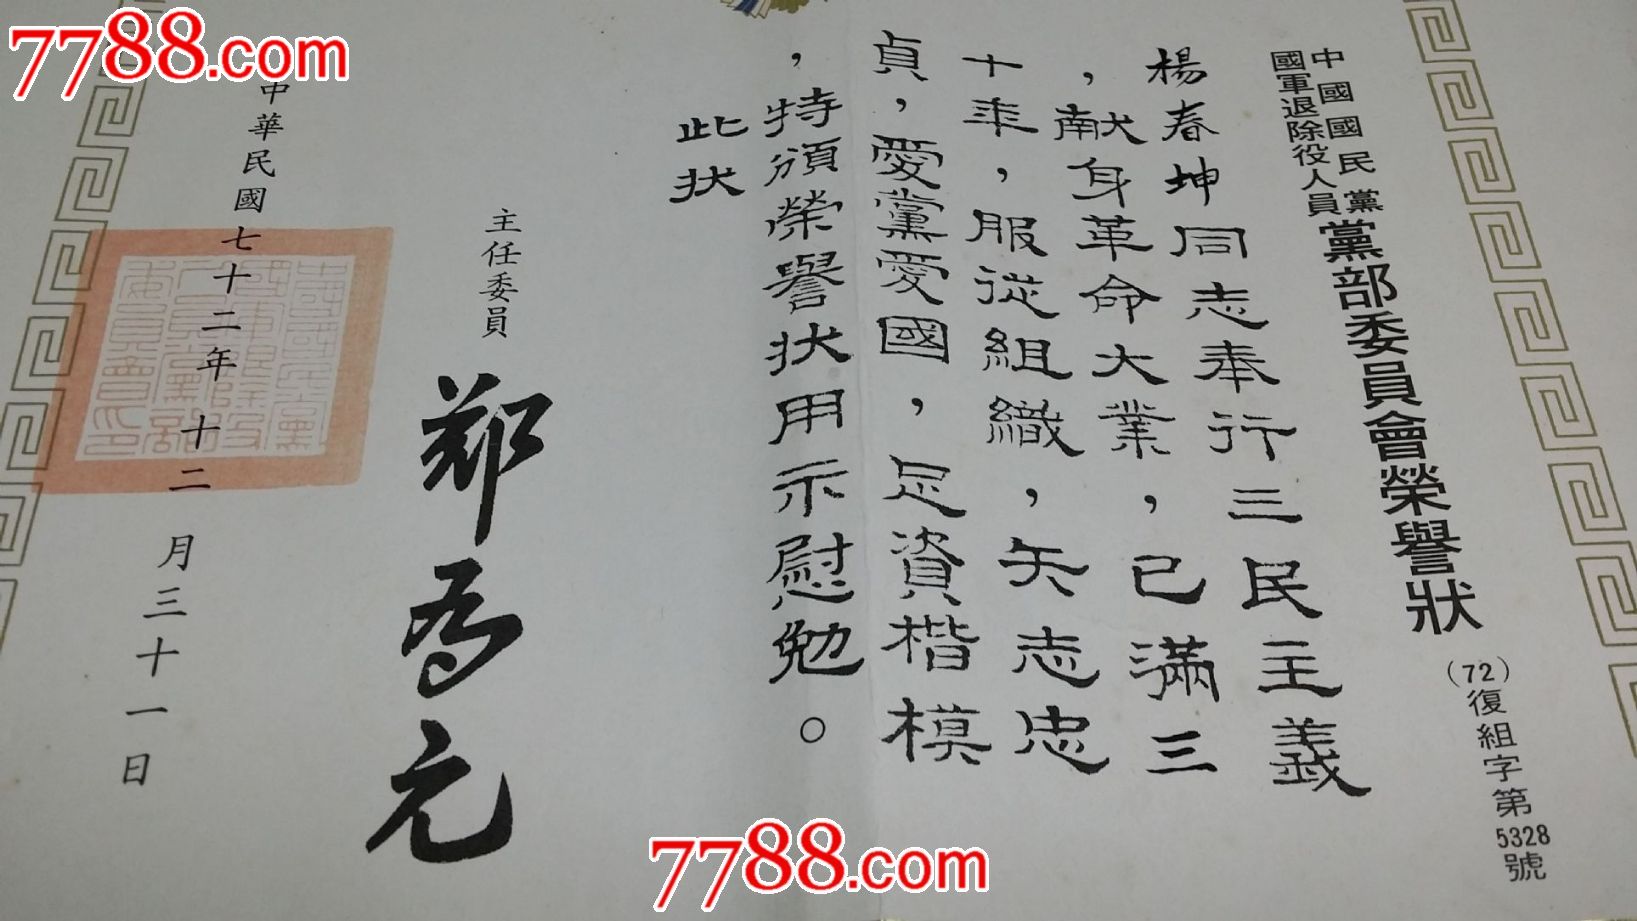 中國國民黨
國軍退除役人員
黨部委員會榮譽狀
(72)復組字第5328號
楊春坤同志奉行三民主義
，献身革命大業，已滿三
十年，服從組織，矢志忠
貞，愛黨愛國，足資楷模
，特頒榮譽狀用示慰勉。
此狀
主任委員
鄭為元
中華民國七十二年十二月三十一日
7788.com
7788.com